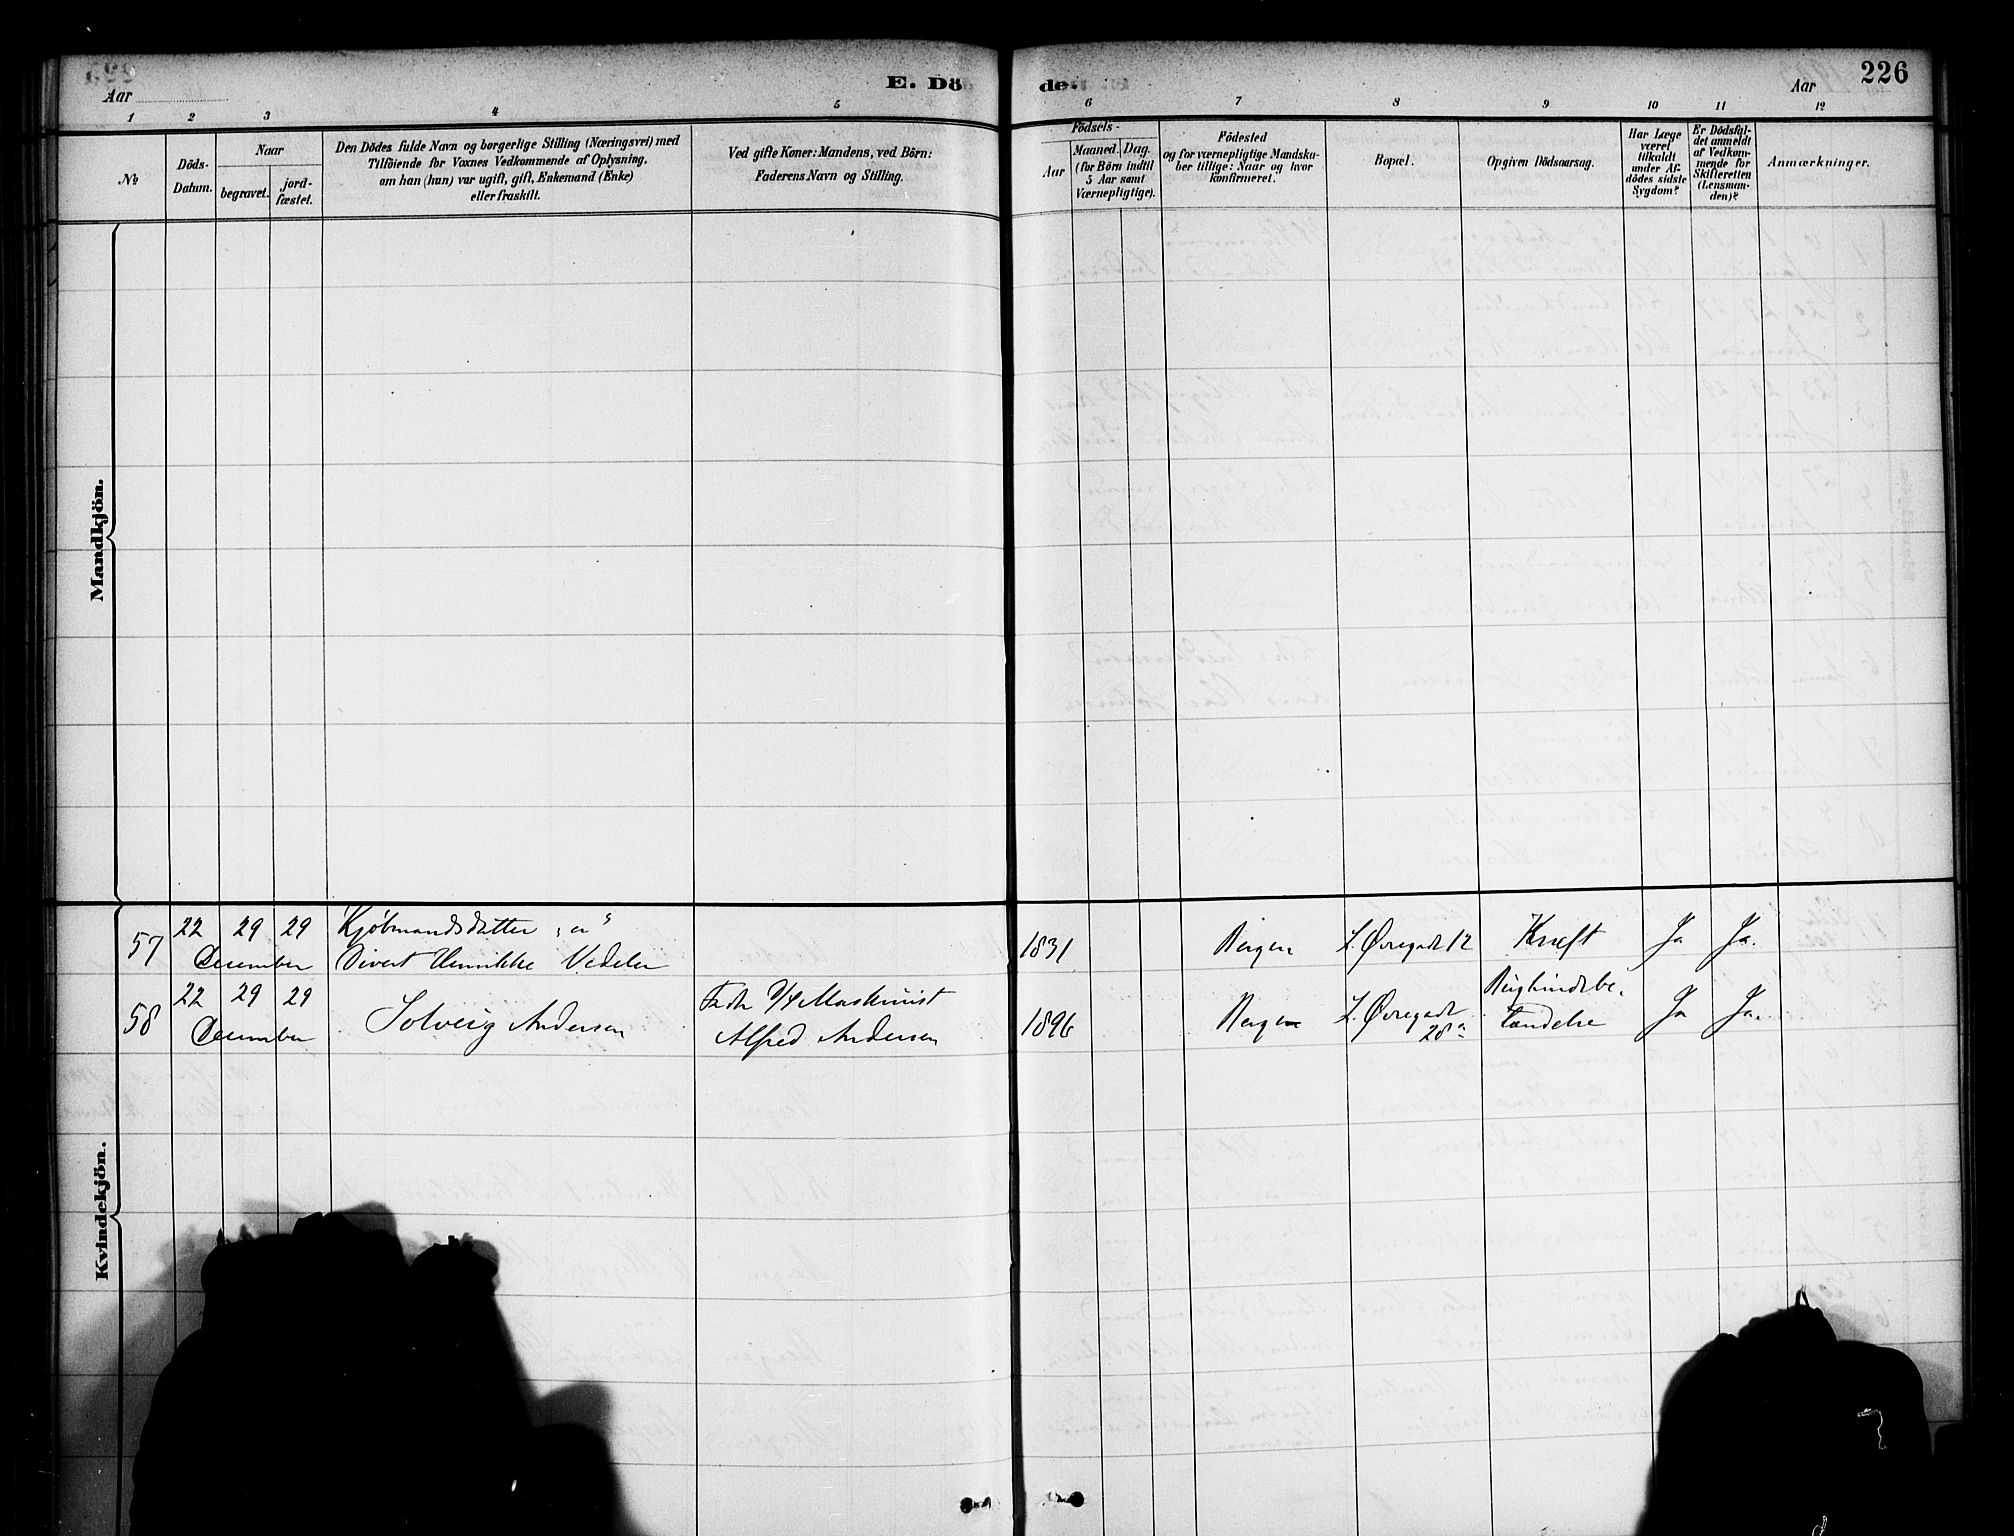 E. Döde.
226
Aar
Aar
1 2 3 4 5 6 7 8 9 10 11 12
No
Döds-
Datum.
Naar
begravet.
jord-
fæstet.
Den Dödes fulde Navn og borgerlige Stilling (Næringsvei) med
Tilföiende for Voxnes Vedkommende af Oplysning,
om han (hun) var ugift, gift, Enkemand (Enke)
eller fraskilt.
Ved gifte Koner: Mandens, ved Börn:
Faderens Navn og Stilling.
Födsels-
Aar
Maaned. Dag.
(for Börn indtil
5 Aar samt
Værnepligtige).
Födested
og for værnepligtige Mandska-
ber tillige: Naar og hvor
konfirmeret.
Bopæl.
Opgiven Dödsaarsag.
Har Læge
været
tilkaldt
under Af-
dödes sidste
Sygdom?
Er Dödsfal-
det anmeldt
af Vedkom-
mende for
Skifteretten
(Lensman-
den)?
Anmærkninger.
Mandkjön.
Kvindekjön.
57 22 29 29 Kjøbmandsdatter 1831 Bergen L. Øvregade 12 Kræft Ja Ja.
December Divert Henrikke Vedeler
58 22 29 29 Solveig Andersen Fader Maskinist 1896 Bergen L. Øvregade Brysthindebe-
December Alfred Andersen 28a tændelse Ja Ja.